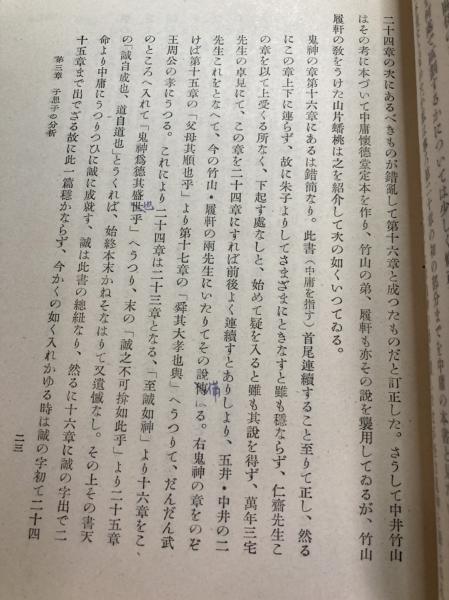 二十四章の次にあるべきものが錯亂して第十六章と成つたものだと訂正した。さうして中井竹山
はその考に本づいて中庸懷德堂定本を作り、竹山の弟、履軒も亦その說を襲用してゐるが、竹山
履軒の敎をうけた山片蟠桃は之を紹介して次の如くいつてゐる。
鬼神の章第十六章にあるは錯簡なり。此書（中庸を指す）首尾連續すること至りて正し、然る
にこの章上下に連らず、故に朱子よりしてさまざまにときなすと雖も穩ならず、仁齋先生こ
の章を以て上受くる所なく、下起す處なしと、始めて疑を入ると雖も其說を得ず、萬年三宅
先生の卓見にて、この章を二十四章にすれば前後よく連續すとありしより、五井・中井の二
先生これをとなへて、今の竹山・履軒の兩先生にいたりてその說傳はる。右鬼神の章をのぞ
けば第十五章の「父母其順也乎」より第十七章の「舜其大孝也與」へうつりて、だんだん武
王周公の孝にうつる。これにより二十四章は二十三章となる、「至誠如神」より十六章をこ
のところへ入れて「鬼神爲德其盛也乎」へうつり、末の「誠之不可揜如此乎」より二十五章
の「誠自成也、道自道也」とうくれば、始終本末かねそなはりて又遺憾なし。その上その書天
命より中庸にうつりつひに誠に成就す、誠は此書の總紐なり、然るに十六章に誠の字出でて二
十五章まで出でざる故に此一篇穩かならず、今かくの如く入れかゆる時は誠の字初て二十四
第三章　子思子の分析
二三